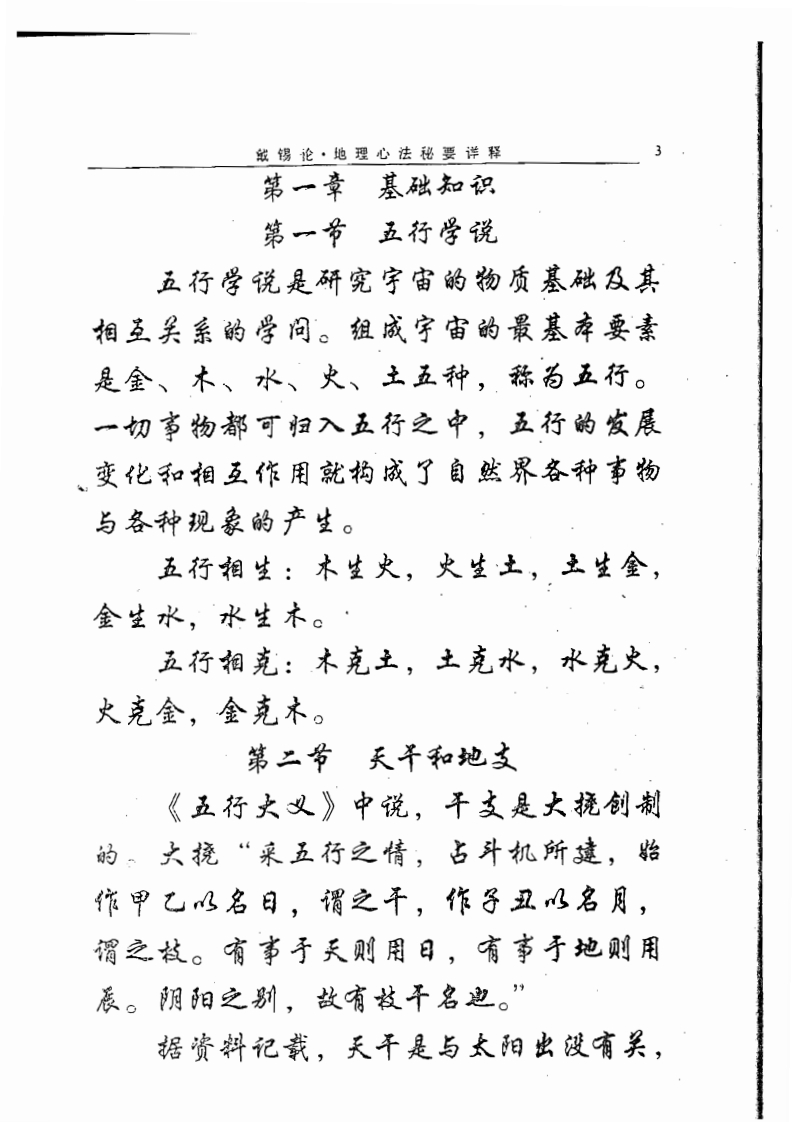 戴锡论·地理心法秘要详释 3
第一章 基础知识
第一节 五行学说
五行学说是研究宇宙的物质基础及其
相互关系的学问。组成宇宙的最基本要素
是金、木、水、火、土五种，称为五行。
一切事物都可归入五行之中，五行的发展
变化和相互作用就构成了自然界各种事物
与各种现象的产生。
五行相生：木生火，火生土，土生金，
金生水，水生木。
五行相克：木克土，土克水，水克火，
火克金，金克木。
第二节 天干和地支
《五行大义》中说，干支是大挠创制
的。大挠“采五行之情，占斗机所建，始
作甲乙以名日，谓之干，作子丑以名月，
谓之枝。有事于天则用日，有事于地则用
辰。阴阳之别，故有枝干名也。”
据资料记载，天干是与太阳出没有关，